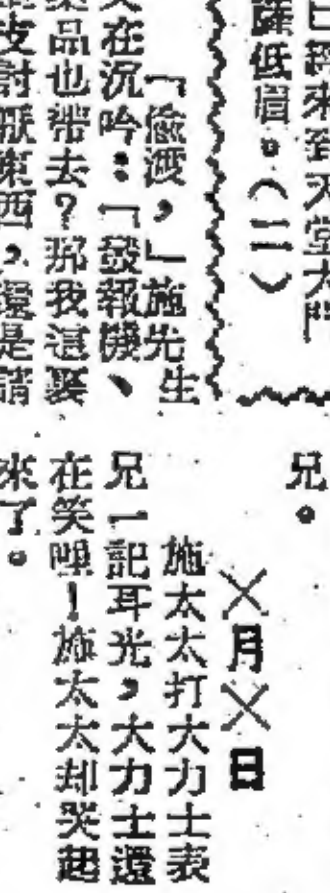 已經來到天堂大門
薩低眉。（二）
「偷渡，」施先生
又在沉吟：「發報機、
藥品也帶去？那我這裂
皮討厭東西，還是請
兄。
╳月╳日
施太太打大力士表
兄一記耳光，大力士還
在笑哩！施太太却哭起
來了。